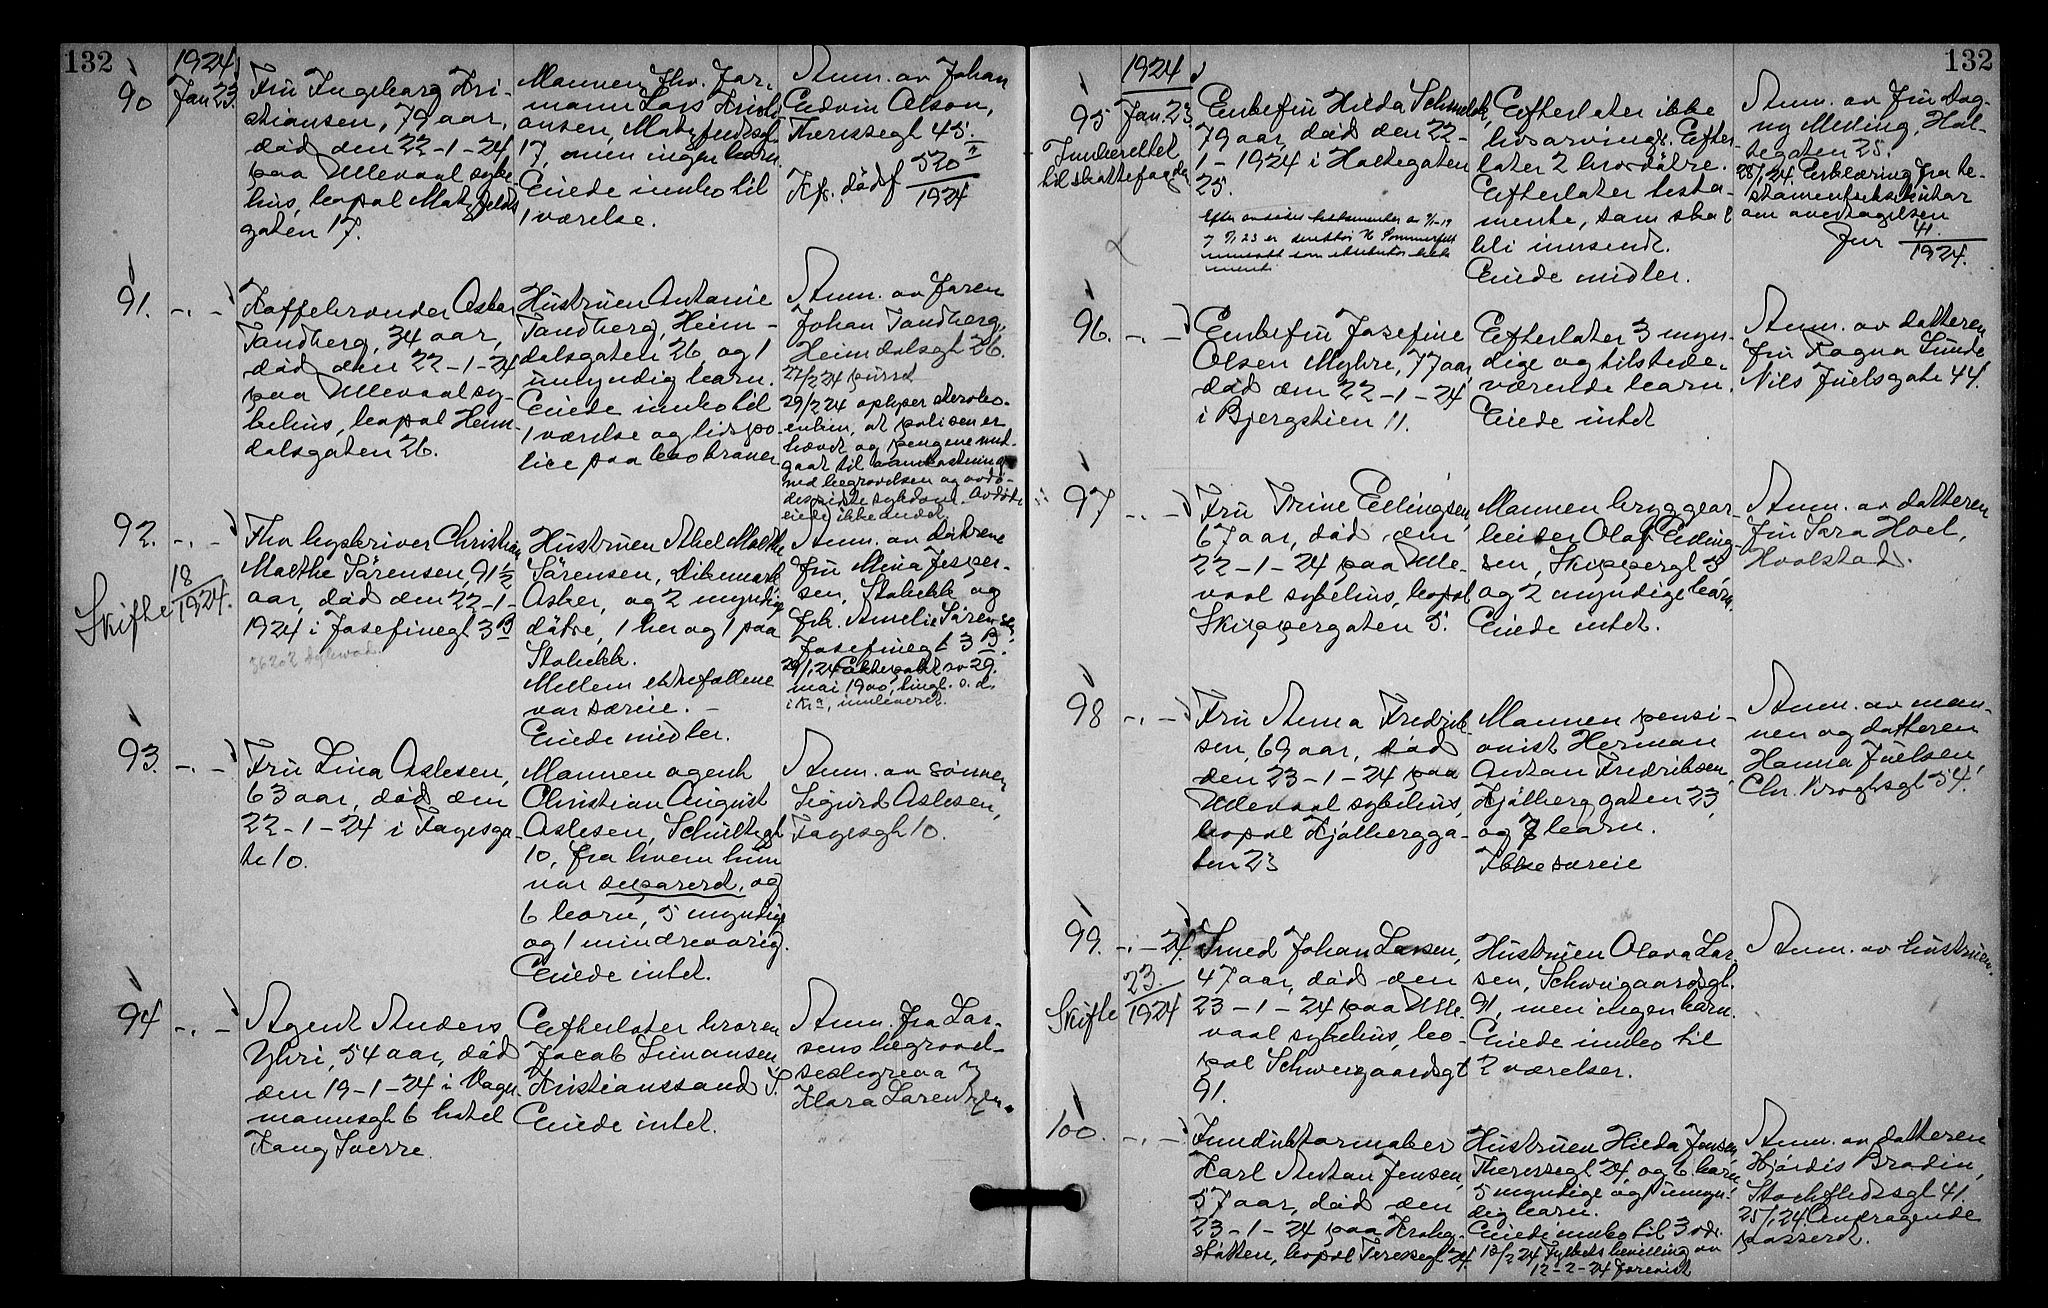 132
1924
90 Jan 23.
Fru Ingeborg Kri-
stiansen, 79 aar,
död den 22-1-24
paa Ullevaal syke-
hus, bopæl Matz felds
gaten 17.
Mannen fhv. For-
mann Lars Kristi-
ansen, Matzfeldsgt
17, men ingen barn.
Eiede innbo til
1 værelse.
Anm. av Johan
Edvin Olson,
Theresegt 45.
Kfr. dödf 520/1924
91. -.-
Kaffebrenner Oskar
Tandberg, 34 aar,
död den 22-1-24
paa Ullevaal sy-
kehus, bopæl Heim-
dalsgaten 26.
Hustruen Antonie
Tandberg, Heim-
dalsgaten 26, og 1
umyndig barn.
Eiede innbo til
1 værelse og livspo-
lice paa 600 kroner
Anm. av faren
Johan Tandberg,
Heimdalsgt 26.
22/2 24 purret
29/2 24 oplyser
enken, at polisen er
hævet og pengene med-
gaat til omkostninger
med begravelsen og avdö-
des siste sykdom. Avdöde
eiede ikke andet
92. -.-
Skifte 18/1924.
Fhv byskriver Christian
Malthe Sörensen, 91 1/2
aar, död den 22-1-
1924 i Josefinegt 3 B
Hustruen Abel Malthe
Sörensen, Dikemark
Asker, og 2 myndige
dötre, 1 her og 1 paa
Stabekk.
Mellem ektefællene
var særeie. -
Eiede midler.
Anm. av dötrene
fru Mina Jesper-
sen, Stabekk og
frk. Amelie Sören sen,
Josefinegt 3 B.
29/1 24 Ektepakt av 29.
mai 1900, tingl. s. d.
i Kra, innleveret.
93. -.-
Fru Lina Aslesen,
63 aar, död den
22-1-24 i Fayesga-
te 10.
Mannen agent
Christian August
Aslesen, Schultzgt
10, fra hvem hun
var separert, og
6 barn, 5 myndige
og 1 mindreaarig.
Eiede intet.
Anm. av sönnen
Sigurd Aslesen,
Fayesgt 10.
94 -.-
Agent Anders
Yhri, 54 aar, död
den 19-1-24 i Vogn
mannsgt 6 hotel
Kong Sverre.
Efterlater broren
Jacob Simonsen
Kristianssand S.
Eiede intet.
Anm. fra Lar-
sens begravel-
sesbyraa v
Klara Lorentzen.
132
1924
95 Jan. 23.
Innberettet
til skattefogden
Enkefru Hilda Schmelck,
79 aar, död den 22-
1-1924 i Holtegaten
25.
Efterlater ikke
livsarving. Efter-
later 2 brordötre.
Efterlater testa-
mente, som skal
bli innsendt.
Eiede midler.
Anm. av fru Dag-
ny Melling, Hol-
tegaten 25.
28/1 24 Erklæring fra te-
stamentseksekutor
om overtagelsen
Jnr 41/1924.
96. -.-
Enkefru Josefine
Olsen Myhre, 77 aar
död den 22-1-24
i Bjergstien 11.
Efterlater 3 myn-
dige og tilstede-
værende barn.
Eiede intet
Anm. av datteren
fru Ragna Sunde
Nils Juelsgate 44.
97 -.-
Fru Trine Erlingsen,
67 aar, död den
22-1-24 paa Ulle-
vaal sykehus, bopæl
Skippergaten 5.
Mannen bryggear-
beider Olaf Erling-
sen, Skippergt 5
og 2 myndige barn.
Eiede intet.
Anm. av datteren
fru Sara Hoel,
Hvalstad.
98 -.-
Fru Anna Fredrik-
sen, 69 aar, död
den 23-1-24 paa
Ullevaal sykehus,
bopæl Kjölbergga-
ten 23
Mannen pensi-
onist Herman
Anton Fredriksen,
Kjölberggaten 23,
og 7 barn.
Ikke særeie
Anm. av man-
nen og datteren
Hanna Juelsen,
Chr. Kroghsgt 54.
99. -.- 24.
Skifte 23./1924
Smed Johan Larsen,
47 aar, död den
23-1-24 paa Ulle-
vaal sykehus, bo-
pæl Schweigaardsgt
91.
Hustruen Olava Lar-
sen, Schweigaardsgt.
91, men ingen barn.
Eiede innbo til
2 værelser.
Anm. av hustruen.
100. -.-
Karl Anton Jensen,
57 aar, död den
23-1-24 paa Krohg-
stötten, bopæl Teresegt 24.
Hustruen Hilda Jensen,
Theresegt 24, og 6 barn
5 myndige og 1 umyn-
dig barn.
Eiede innbo til 3 vær.
18/2 24 Fylkets bevilling av
12-2-24 forevist
Anm. av datteren
Hjördis Brodin,
Stockfletsgt 41.
25/1 24 Andragende
passert.